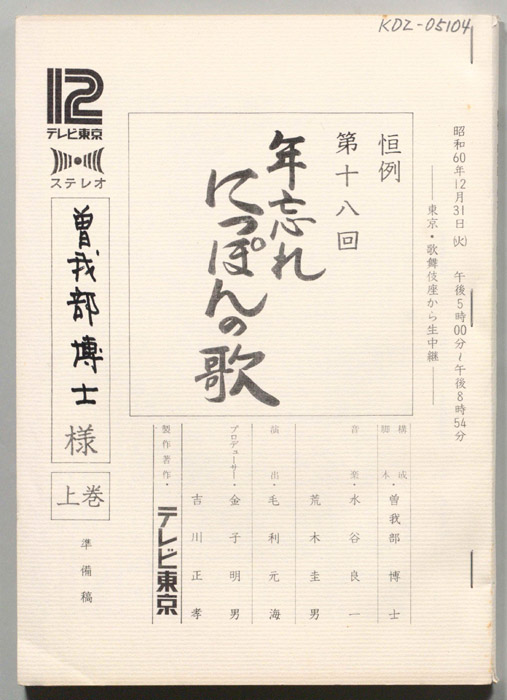 KDZ-05104
昭和60年12月31日(火) 午後5時00分〜午後8時54分
――東京・歌舞伎座から生中継――
恒例
第十八回
年忘れ
にっぽんの歌
構成
脚本・曽我部博士
音楽・水谷良一
荒木圭男
演出・毛利元海
プロデューサー・金子明男
吉川正孝
製作著作・テレビ東京
12
テレビ東京
ステレオ
曽我部博士様
上巻
準備稿